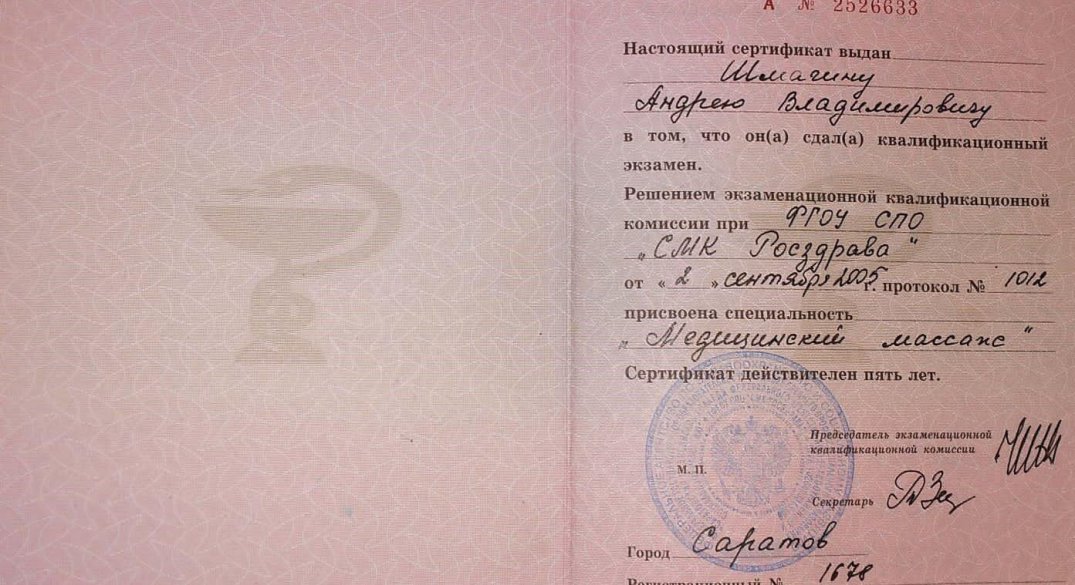 А № 2526633
Настоящий сертификат выдан
Шмагину
Андрею Владимировичу
в том, что он(а) сдал(а) квалификационный
экзамен.
Решением экзаменационной квалификационной
комиссии при ФГОУ СПО
„СМК Росздрава"
от « 2 » сентября 2005 г. протокол № 1012
присвоена специальность
„Медицинский массаж"
Сертификат действителен пять лет.
Председатель экзаменационной
квалификационной комиссии
М. П.
Секретарь
Город Саратов
Регистрационный № 1678